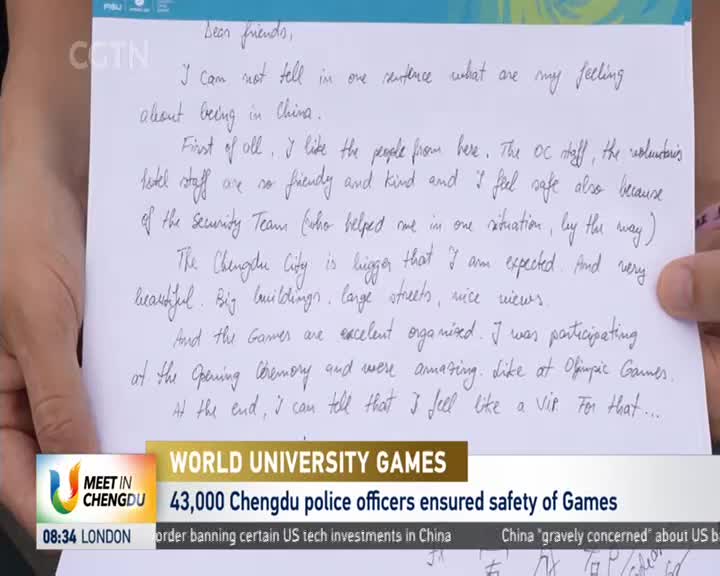 FISU
CGTN
Dear friends,
I can not tell in one sentence what are my feeling
about being in China.
First of all, I like the people from here. The OC staff, the voluntaris
hotel staff are so friendy and kind and I feel safe also because
of the Security Team (who helped me in one situation, by the way)
The Chengdu City is bigger that I am expected. And very
beautiful. Big buildings, large streets, nice views.
And the Games are excelent organised. I was participating
at the Opening Ceremony and were amazing. Like at Olimpic Games.
At the end, I can tell that I feel like a V.I.P. For that...
WORLD UNIVERSITY GAMES
MEET IN
CHENGDU
43,000 Chengdu police officers ensured safety of Games
08:34 LONDON
order banning certain US tech investments in China
China "gravely concerned" about US b